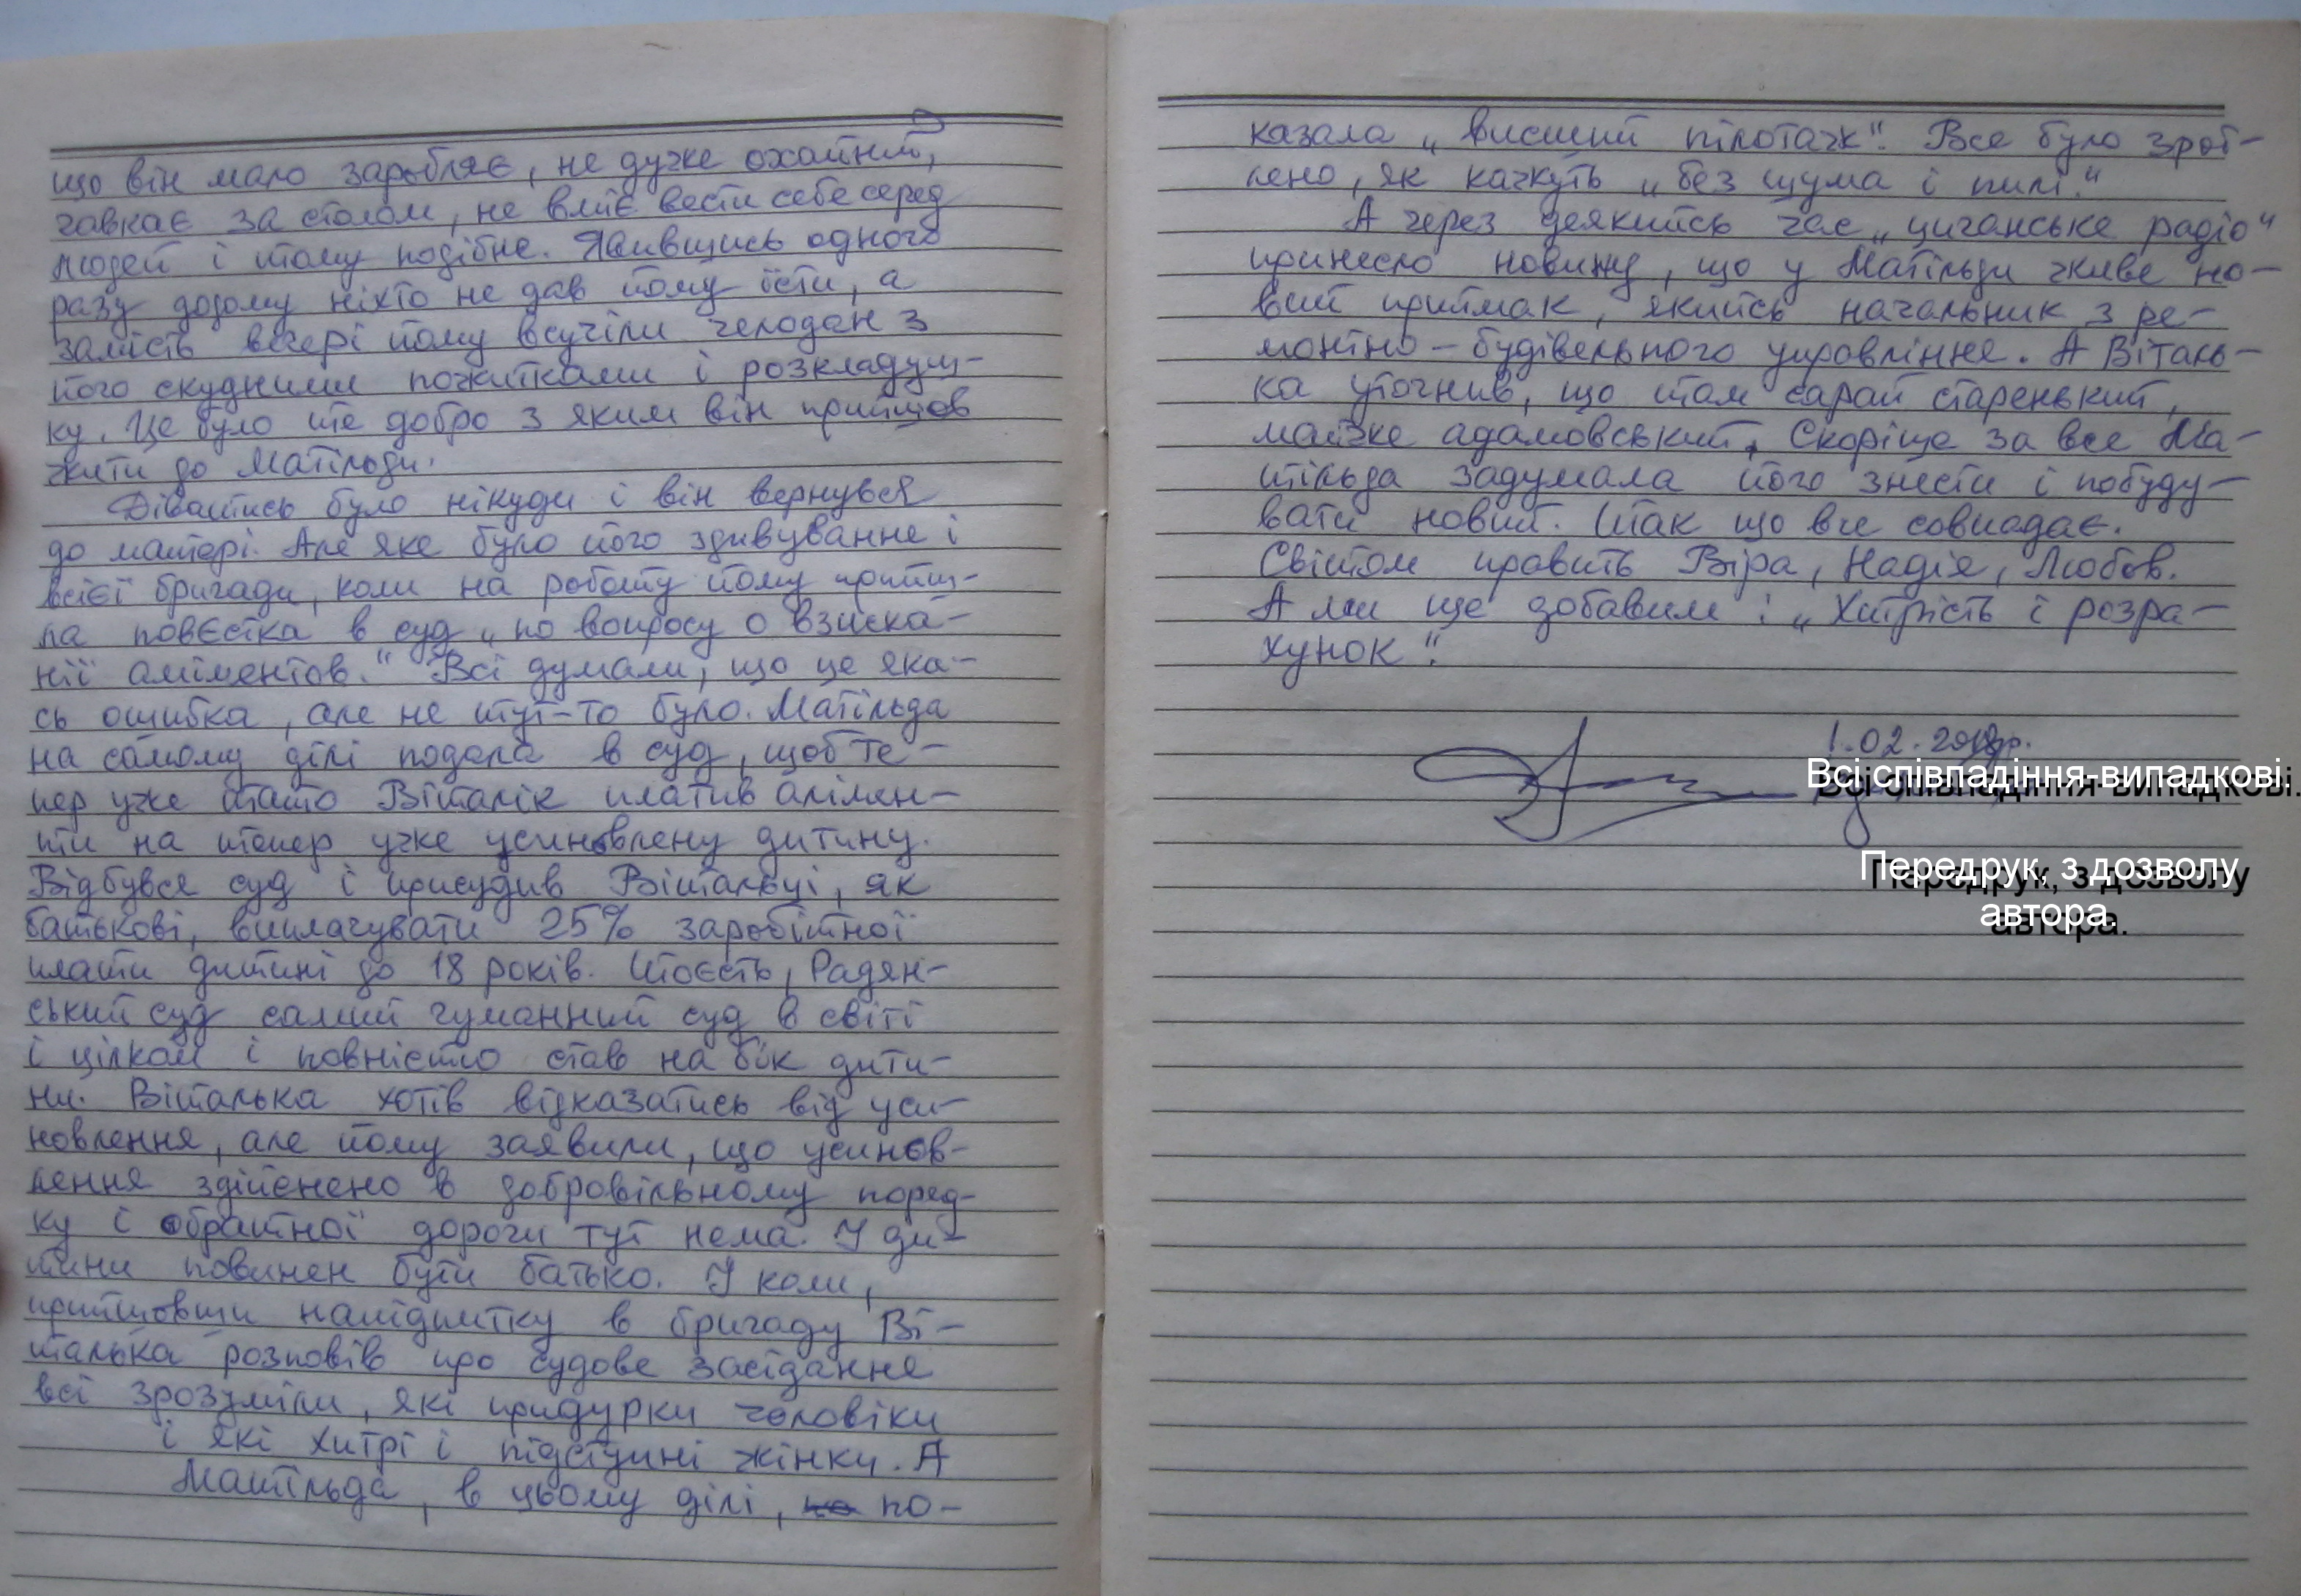 що він мало заробляє, не дуже охайний,
чавкає за столом, не вміє вести себе серед
людей і тому подібне. Явившись одного
разу додому ніхто не дав йому їсти, а
замість вечері йому всучіли челодан з
його скудними пожитками і розкладуш-
ку. Це було те добро з яким він прийшов
жити до Матільди.
Діватись було нікуди і він вернувся
до матері. Але яке було його здивування і
всієї бригади, коли на роботу йому прийш-
ла повєстка в суд „по вопросу о взиска-
нії аліментов." Всі думали, що це яка-
сь ошибка, але не тут-то було. Матільда
на самому ділі подала в суд, щоб те-
пер уже тато Віталік платив алімен-
ти на тепер уже усиновлену дитину.
Відбувся суд і присудив Витальці, як
батькові, виплачувати 25% заробітної
плати дитині до 18 років. Тоєсть, Радян-
ський суд самий гуманний суд в світі
і цілком і повністю став на бік дити-
ни. Віталька хотів відказатись від уси-
новлення, але йому заявили, що усинов-
лення здійснено в добровільному поряд-
ку і обратної дороги тут нема. У ди-
тини повинен бути батько. І коли,
прийшовши напідпитку в бригаду Ві-
талька розповів про судове засідання
всі зрозуміли, які придурки чоловіки
і які хитрі і підступні жінки. А
Матільда, в цьому ділі, по-
казала „висший пілотаж". Все було зроб-
лено, як кажуть „без шума і пилі."
А через деякийсь час „циганське радіо"
принесло новину, що у Матільди живе но-
вий приймак, якийсь начальник з ре-
монтно-будівельного управління. А Віталь-
ка уточнив, що там сарай старенький,
майже адамовський. Скоріще за все Ма-
тільда задумала його знести і побуду-
вати новий. Так що все совпадає.
Світом править Віра, Надія, Любов.
А ми ще добавим і „Хитрість і розра-
хунок".
1.02.2018р.
Всі співпадіння-випадкові.
Передрук, з дозволу
автора.